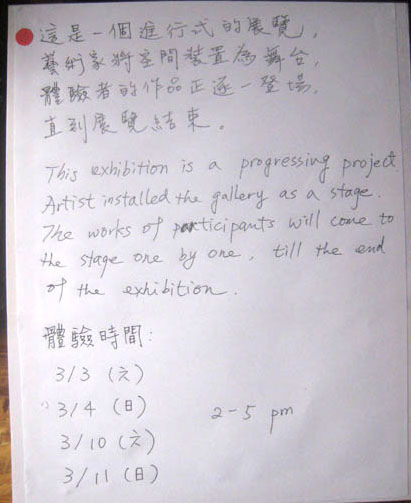 這是一個進行式的展覽，
藝術家將空間裝置為舞台，
體驗者的作品正逐一登場，
直到展覽結束。
This exhibition is a progressing project.
Artist installed the gallery as a stage.
The works of participants will come to
the stage one by one, till the end
of the exhibition.
體驗時間：
3/3 (六)
3/4 (日) 2-5 pm
3/10 (六)
3/11 (日)